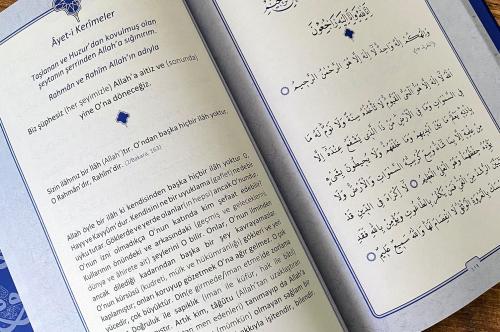 Âyet-i Kerîmeler
Taşlanan ve Huzur'dan kovulmuş olan
şeytanın şerrinden Allah'a sığınırım.
Rahmân ve Rahîm Allah'ın adıyla
Biz şüphesiz (her şeyimizle) Allah'a aitiz ve (sonunda)
yine O'na döneceğiz.
Sizin ilâhınız bir ilâh (Allah)'tır. O'ndan başka hiçbir ilâh yoktur.
O Rahmân'dır, Rahîm'dir. (2/Bakara, 163)
Allah öyle bir ilâh ki kendisinden başka hiçbir ilâh yoktur. O,
Hayy ve Kayyûm'dur. Kendisini ne bir uyuklama (gaflet) ne de bir
uyku tutar. Göklerde ve yerde olanların hepsi ancak O'nundur.
O'nun izni olmadıkça O'nun katında kim şefaat edebilir?
Kullarının önündeki ve arkasındaki (geçmiş ve gelecekleri,
dünya ve âhirete ait) şeylerini O bilir. Onlar, O'nun ilminden
ancak dilediği kadarından başka bir şey kavrayamazlar.
O'nun kürsüsü (kudreti, mülk ve hükümranlığı) gökleri ve yeri
kaplamıştır; onları koruyup gözetmek O'na ağır gelmez. O pek
yücedir, çok büyüktür. Dinle girmede/iman etmede zorlama
Doğruluk ile sapıklık (iman ile küfür, hak ile bâtıl)
Artık kim, tâğûtu (Allah'tan uzaklaştıran
men edenleri) tanımayıp da Allah'a
(mümkün) olmayan sağlam bir
hakkıyla işitendir, bilendir.
إِنَّا لِلَّهِ وَإِنَّا إِلَيْهِ رَاجِعُونَ
وَإِلَٰهُكُمْ إِلَٰهٌ وَاحِدٌ لَا إِلَٰهَ إِلَّا هُوَ الرَّحْمَٰنُ الرَّحِيمُ
اللَّهُ لَا إِلَٰهَ إِلَّا هُوَ الْحَيُّ الْقَيُّومُ لَا تَأْخُذُهُ سِنَةٌ وَلَا نَوْمٌ لَهُ مَا
فِي السَّمَاوَاتِ وَمَا فِي الْأَرْضِ مَنْ ذَا الَّذِي يَشْفَعُ عِنْدَهُ إِلَّا
بِإِذْنِهِ يَعْلَمُ مَا بَيْنَ أَيْدِيهِمْ وَمَا خَلْفَهُمْ وَلَا يُحِيطُونَ بِشَيْءٍ
مِنْ عِلْمِهِ إِلَّا بِمَا شَاءَ وَسِعَ كُرْسِيُّهُ السَّمَاوَاتِ وَالْأَرْضَ وَلَا
يَئُودُهُ حِفْظُهُمَا وَهُوَ الْعَلِيُّ الْعَظِيمُ لَا إِكْرَاهَ فِي الدِّينِ قَدْ
تَبَيَّنَ الرُّشْدُ مِنَ الْغَيِّ فَمَنْ يَكْفُرْ بِالطَّاغُوتِ وَيُؤْمِنْ بِاللَّهِ فَقَدِ
اسْتَمْسَكَ بِالْعُرْوَةِ الْوُثْقَىٰ لَا انْفِصَامَ لَهَا وَاللَّهُ سَمِيعٌ عَلِيمٌ